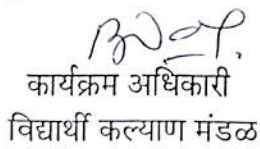 कार्यक्रम अधिकारी
विद्यार्थी कल्याण मंडळ